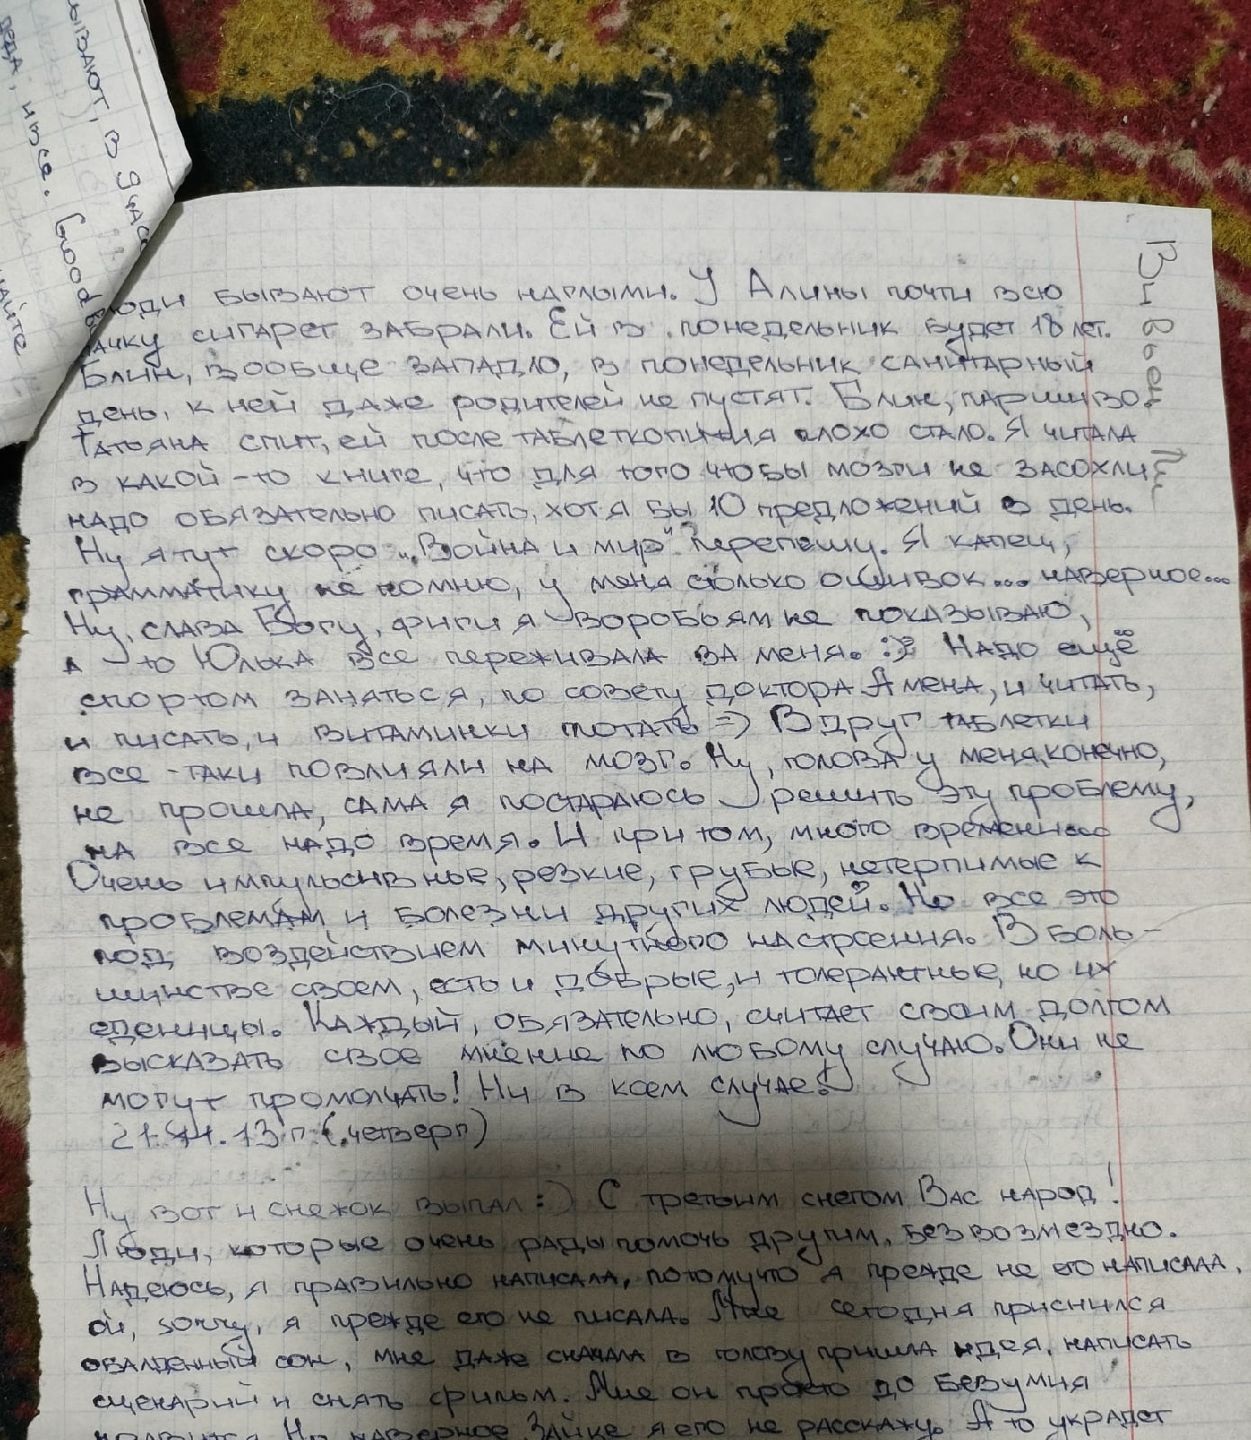 ывают, в 9 час
еда, и все. Good
айте
Люди бывают очень наглыми. У Алины почти всю
пачку сигарет забрали. Ей в понедельник будет 18 лет.
Блин, вообще западло, в понедельник санитарный
день, к ней даже родителей не пустят. Блин, паршиво.
Татьяна спит, ей после таблеткопития плохо стало. Я читала
в какой-то книге, что для того чтобы мозги не засохли
надо обязательно писать, хотя бы 10 предложений в день.
Ну я тут скоро "Война и мир" перепешу. Я капец,
грамматику не помню, у меня столько ошибок... наверное...
Ну, слава Богу, фиги я воробьям не показываю,
а то Юлька все переживала за меня. :) Надо ещё
спортом заняться, по совету доктора Амена, и читать,
и писать, и витаминки глотать =) Вдруг таблетки
все-таки повлияли на мозг. Ну, голова у меня, конечно,
не прошла, сама я постараюсь решить эту проблему,
на все надо время. И при том, много времени...
Очень импульсивные, резкие, грубые, нетерпимые к
проблемам и болезни других людей. Но все это
под воздействием минутного настроения. В боль-
шинстве своем, есть и добрые, и толерантные, но их
еденицы. Каждый, обязательно, считает своим долгом
высказать свое мнение по любому случаю. Они не
могут промолчать! Ни в коем случае.
21.11.13 г. (четверг)
Ну вот и снежок выпал :) С третьим снегом Вас народ!
Люди, которые очень рады помочь другим, безвозмездно.
Надеюсь, я правильно написала, потому что я прежде не его написала,
ой, sorry, я прежде его не писала. Мне сегодня приснился
обалденный сон, мне даже сначала в голову пришла идея, написать
сценарий и снять фильм. Мне он просто до безумия
нравится. Но наверное Зайке я его не расскажу. А то украдет